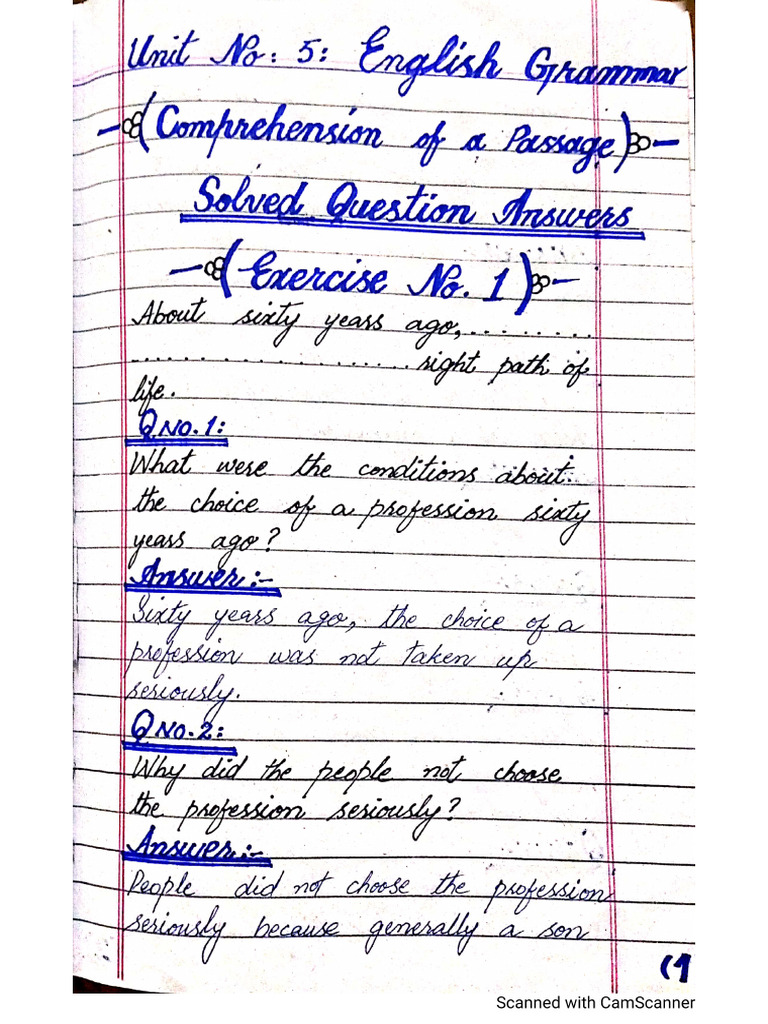 Unit No: 5: English Grammar
(Comprehension of a Passage)
Solved Question Answers
(Exercise No. 1)
About sixty years ago,.........
......................right path of
life.
Q No. 1:
What were the conditions about
the choice of a profession sixty
years ago?
Answer:-
Sixty years ago, the choice of a
profession was not taken up
seriously.
Q No. 2:
Why did the people not choose
the profession seriously?
Answer:-
People did not choose the profession
seriously because generally a son
(1
Scanned with CamScanner